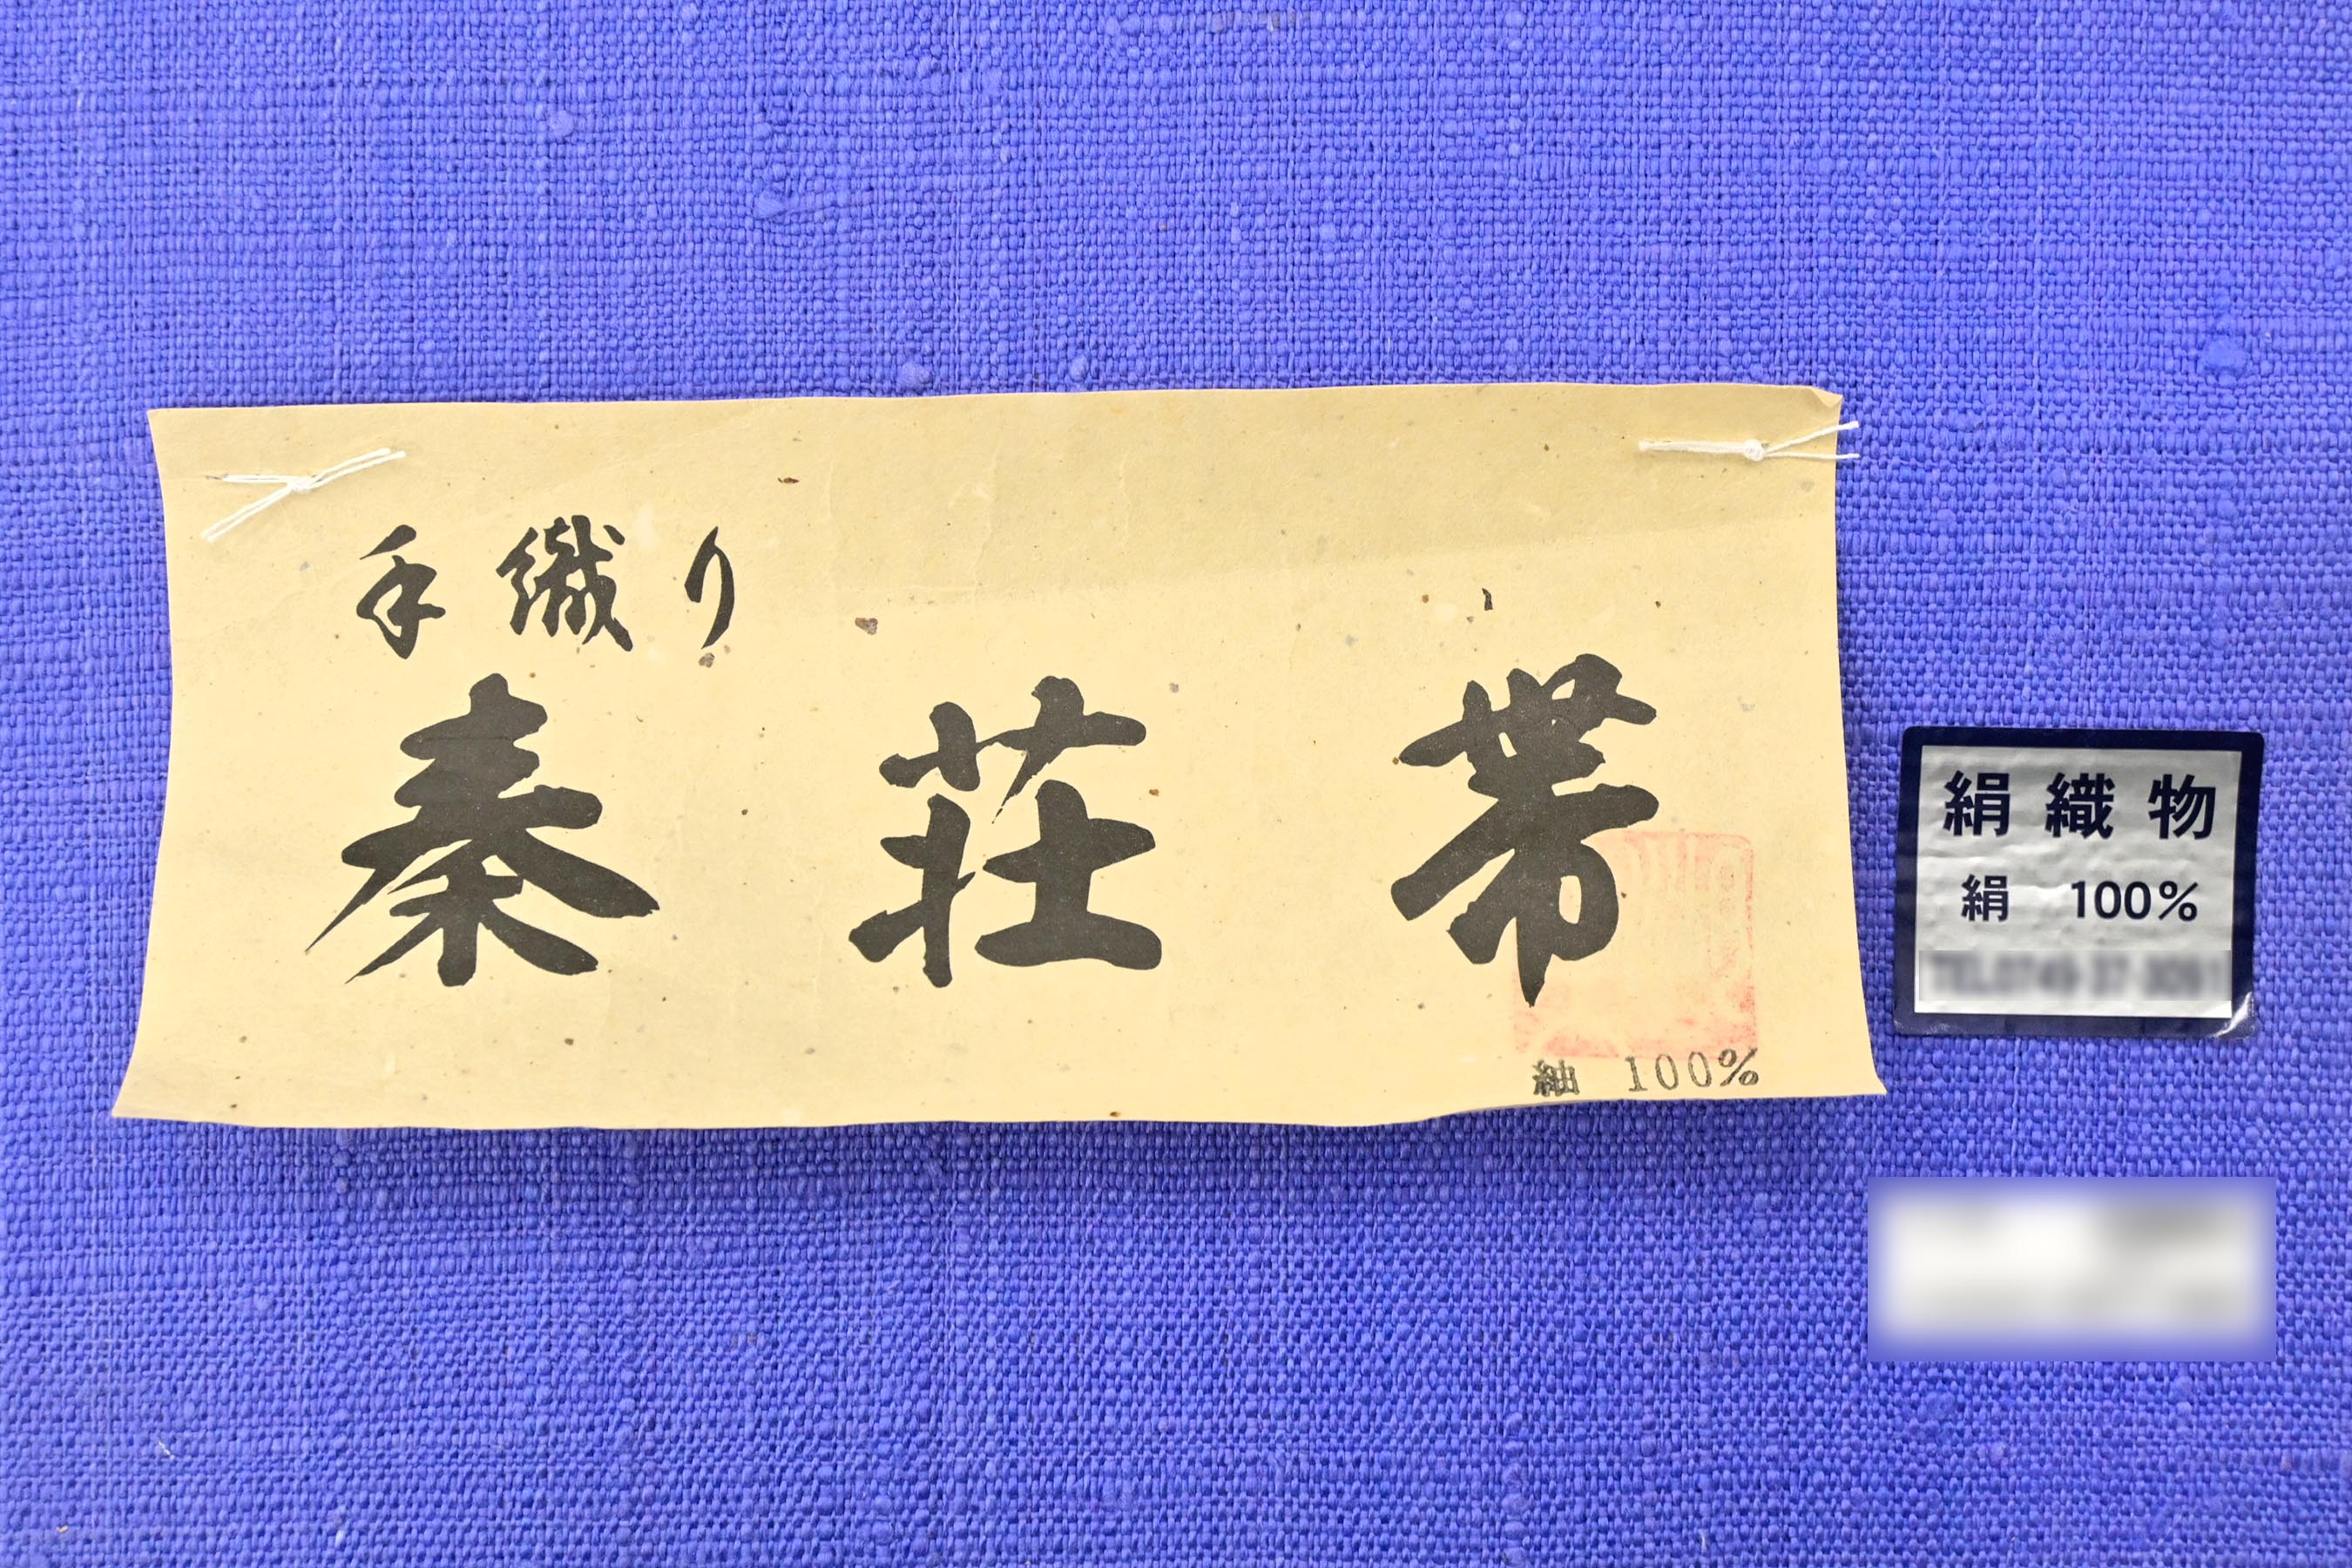 手織り
秦荘帯
紬 100%
絹織物
絹 100%